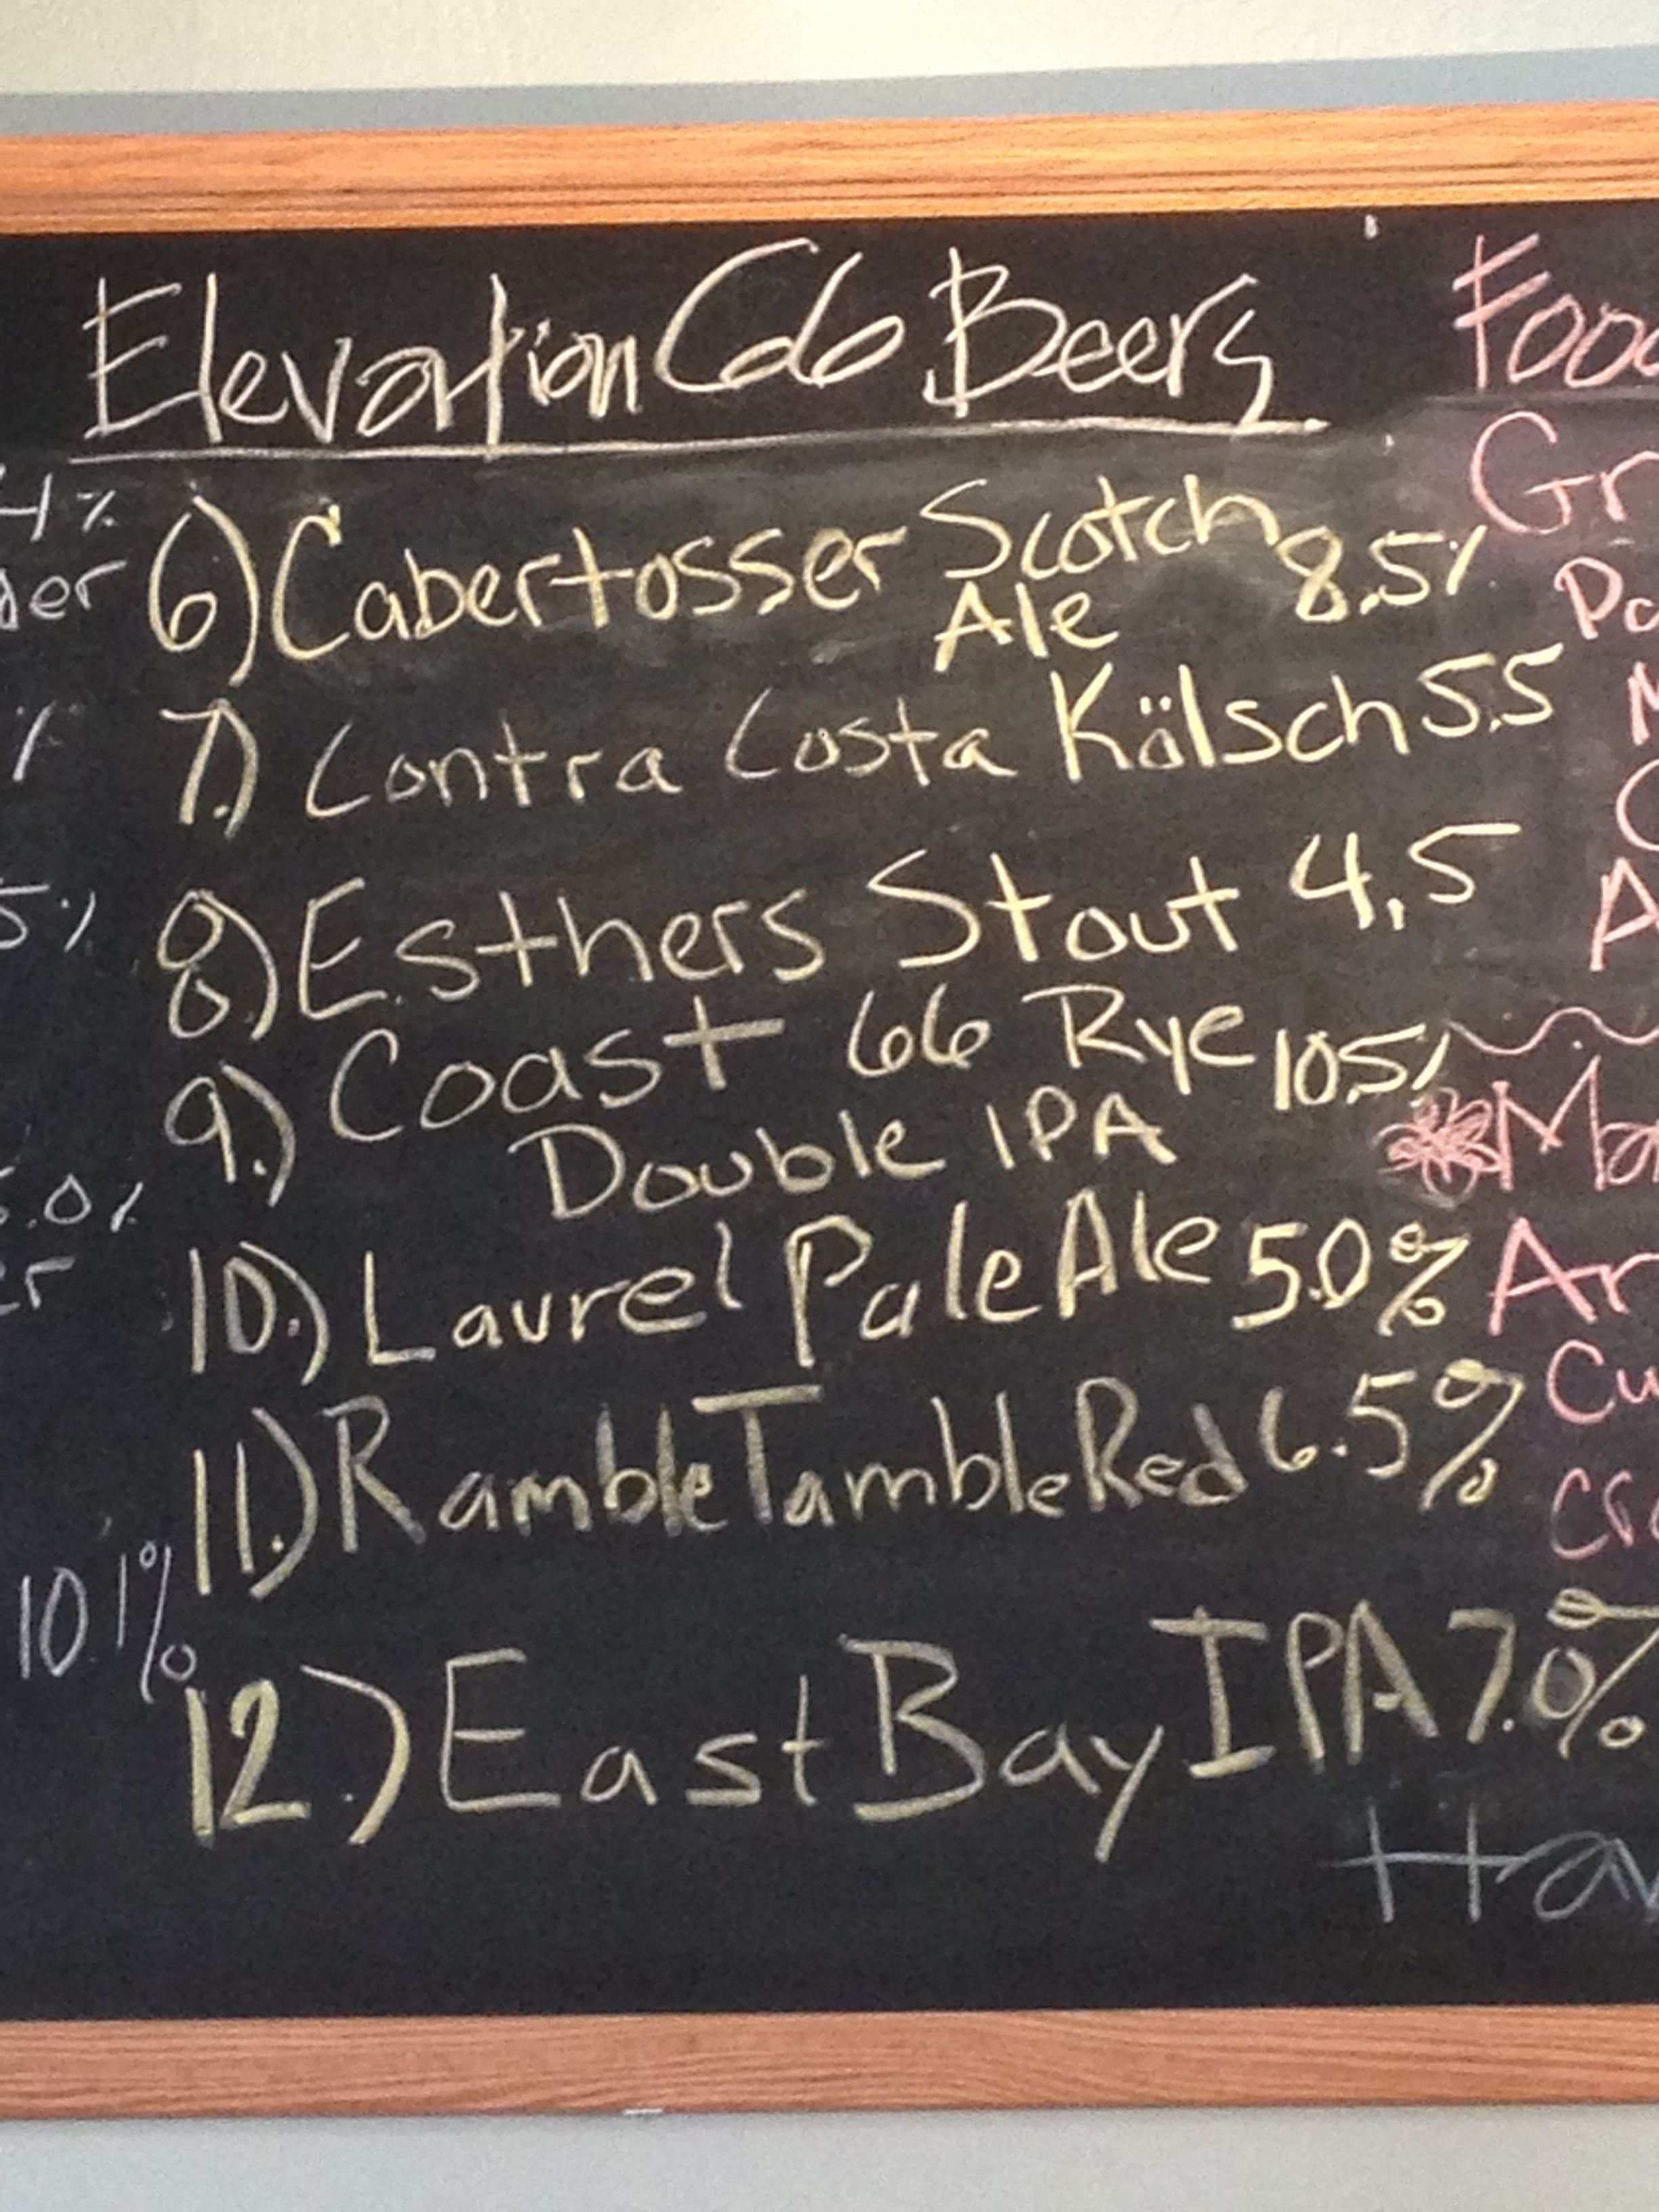 Elevation 66 Beers
6) Cabertosser Scotch 8.5%
Ale
7.) Contra Costa Kölsch 5.5
8.) Esthers Stout 4.5
9.) Coast 66 Rye 10.5%
Double IPA
10.) Laurel Pale Ale 5.0%
11.) Ramble Tamble Red 6.5%
12.) East Bay IPA 7.0%
4%
der
%
5%
5.0%
er
10.1%
Food
Gr
Pa
M
C
A
Mar
Ar
Cu
Cro
Hav